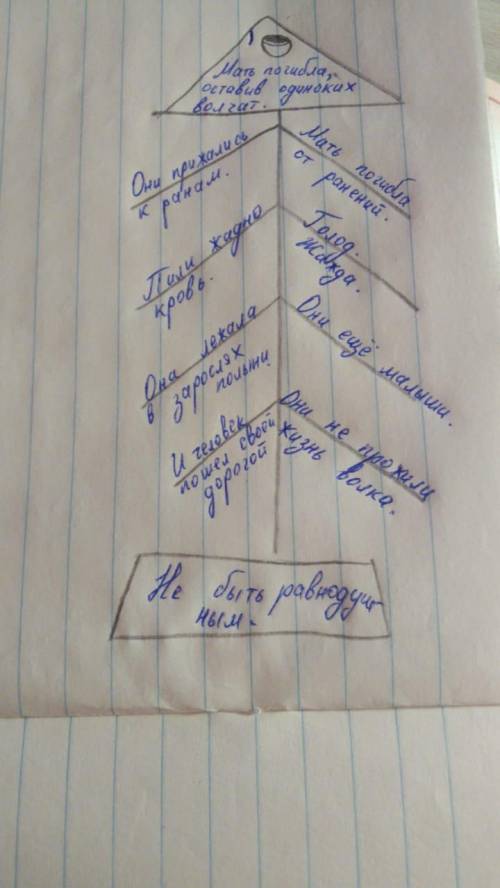 Мать погибла,
оставив одиноких
волчат.
Они прижались
к ранам.
Мать погибла
от ранений.
Пили жадно
кровь.
Голод.
Жажда.
Она лежала
в зарослях
полыни
Они ещё малыши.
И человек
пошел своей
дорогой
Они не прожили
жизнь волка.
Не быть равнодуш
ным.